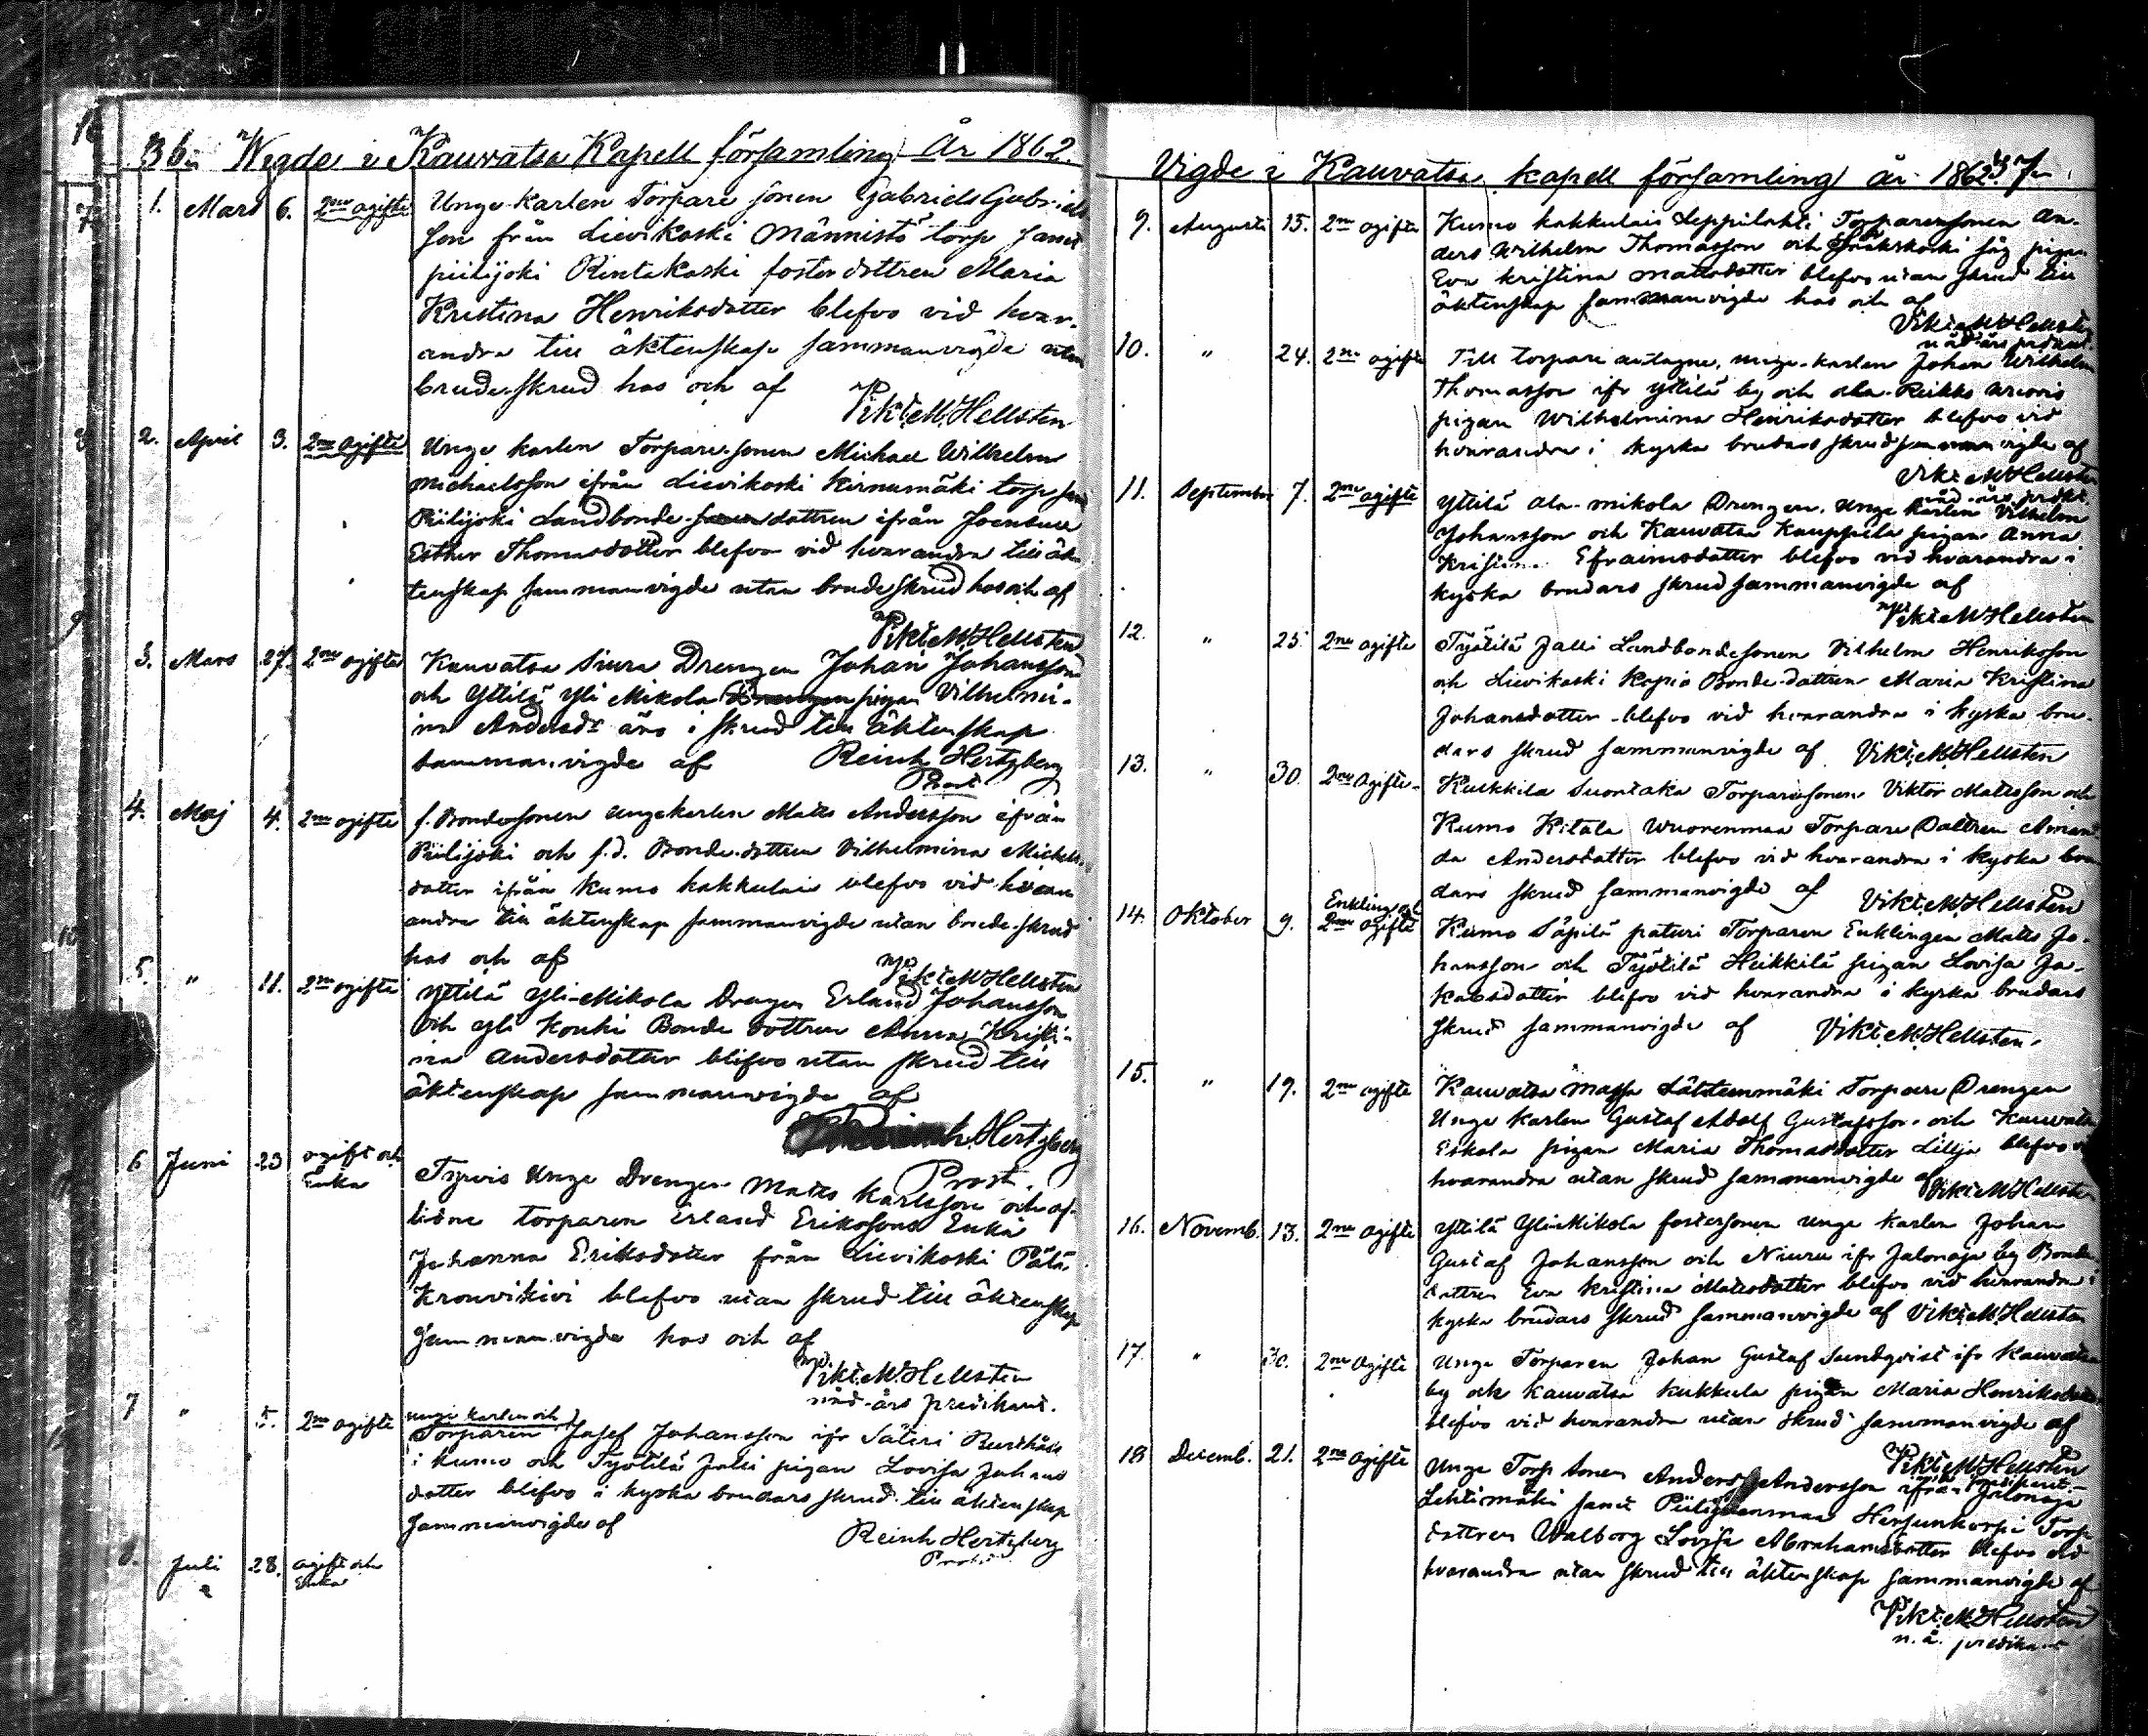 36. Wigde i Kauvatsa Kapell församling År 1862.
1. Mars 6. 2ne ogifte Unge karlen Torpare sonen Gabriel Gabriels
son från Lievikoski Männistö torp samt
piilijoki Rintakoski foster dottren Maria
Kristina Henriksdotter blefvo vid hvar-
andra till äktenskap sammanvigde utan
brudeskrud hos och af
Vikt. M. Hellsten
2. April 3. 2ne ogifte Unge karlen Torpare-sonen Michael Wilhelm
Michaelsson ifrån Lievikoski Kirnumäki torp samt
Piilijoki Landbonde dottren ifrån Joensuu
Esther Thomasdotter blefvo vid hvarandra till äk-
tenskap sammanvigde utan brudeskrud hos och af
Vikt. M. Hellsten
3. Mars 27. 2ne ogifte Kauvatsa Siura Drengen Johan Johansson
och Yttilä Yli Mikola pigan Vilhelmi-
na Andersdr äro i skrud till äktenskap
sammanvigde af Reinh Hertzberg
Prost
4. Maj 4. 2ne ogifte f. Bondesonen ungekarlen Matts Andersson ifrån
Piilijoki och f.d. Bonde-dottren Vilhelmina Michels-
dotter ifrån Kumo kakkulais blefvo vid hvar
andra till äktenskap sammanvigde utan brude-skrud
hos och af
Vikt M Hellsten
5. " 11. 2ne ogifte Yttilä Yli-Mikola Drengen Erland Johansson
och Yli Kouhi Bonde dottren Anna Kristi-
na Andersdotter blefvo utan skrud till
äktenskap sammanvigde af
Hertzberg
Prost.
6 Juni 23 ogift och
Enka
Tyrvis Unge Drengen Matts Karlsson och af-
lidne torparen Erland Erikssons Enka
Johanna Eriksdotter från Lievikoski
Krouvikivi blefvo utan skrud till äktenskap
sammanvigde hos och af
Vikt. M. Hellsten
nåd-års predikant.
7 " 5. 2ne ogifte unge karlen och
Torparen Josef Johansson ifr Säteri
i Kumo och Työtilä Jalli pigan Lovisa Johans
dotter blefvo i kyska brudars skrud till äktenskap
sammanvigde af
Reinh Hertzberg
Prost
8. Juli 28. ogift och
Enka
Vigde i Kauvatsa kapell församling år 1862
9. Augusti 15. 2ne ogifte Kumo kakkulais Leppilahti Torparesonen An-
ders Wilhelm Thomasson och såg pigan
Eva Kristina Mattsdotter blefvo utan skrud till
äktenskap sammanvigde hos och af
Vikt. M Hellsten
nåd-års predikant.
10. " 24. 2ne ogifte Till torpare antagne, unge-karlen Johan Wilhelm
Thomasson ifr Yttilä by och
pigan Wilhelmina Henriksdotter blefvo vid
hvarandra i kyska brudars skrud sammanvigde af
Vikt. M Hellsten
nåd-års predikt.
11. September 7. 2ne ogifte Yttilä Ala-mikola Drengen, Unge karlen Vilhelm
Johansson och Kauvatsa Kauppila pigan Anna
Kristina Efraimsdotter blefvo vid hvarandra i
kyska brudars skrud sammanvigde af
Vikt M Hellsten
12. " 25 2ne ogifte Työtilä Jalli Landbondesonen Vilhelm Henriksson
och Lievikoski Kapio Bonde-dottren Maria Kristina
Johansdotter blefvo vid hvarandra i kyska bru-
dars skrud sammanvigde af Vikt. M. Hellsten
13. " 30. 2ne Ogifte Kulkkila Suontaka Torparesonen Viktor Mattsson och
Kumo Kitala Wuorenmaa Torpare Dottren Aman
da Andersdotter blefvo vid hvarandra i kyska bru
dars skrud sammanvigde af Vikt. M. Hellsten
14. Oktober 9. Enkling och
2ne ogifte
Kumo Säpilä paturi Torparen Enklingen Matts Jo-
hansson och Työtilä Heikkilä pigan Lovisa Ja-
kobsdotter blefvo vid hvarandra i kyska brudars
skrud sammanvigde af Vikt. M. Hellsten.
15. " 19. 2ne ogifte Kauvatsa Torpare Drengen
Unge karlen Gustaf Adolf Gustafsson och Kauvatsa
Eskola pigan Maria Thomasdotter Lillja blefvo vid
hvarandra utan skrud sammanvigde af Vikt M Hellsten
16. Novemb. 13. 2ne ogifte Yttilä Yli-Mikola fostersonen unge karlen Johan
Gustaf Johansson och Niuru ifr Jalonoja by Bonde
dottren Eva Kristina Mattsdotter blefvo vid hvarandra i
kyska brudars skrud sammanvigde af Vikt. M. Hellsten
17. " 30. 2ne Ogifte Unge Torparen Johan Gustaf Sundqvist ifr Kauvatsa
by och Kauvatsa kukkula pigan Maria Henriksdotter
blefvo vid hvarandra utan skrud sammanvigde af
Vikt. M. Hellsten
18 Decemb. 21. 2ne ogifte Unge Torp sonen Anders Andersson ifrån Jalonoja
Lehtimäki samt Torp
dottren Walborg Lovisa Abrahamsdotter blefvo vid
hvarandra utan skrud till äktenskap sammanvigde af
Vikt. M. Hellsten
n. å. predikant